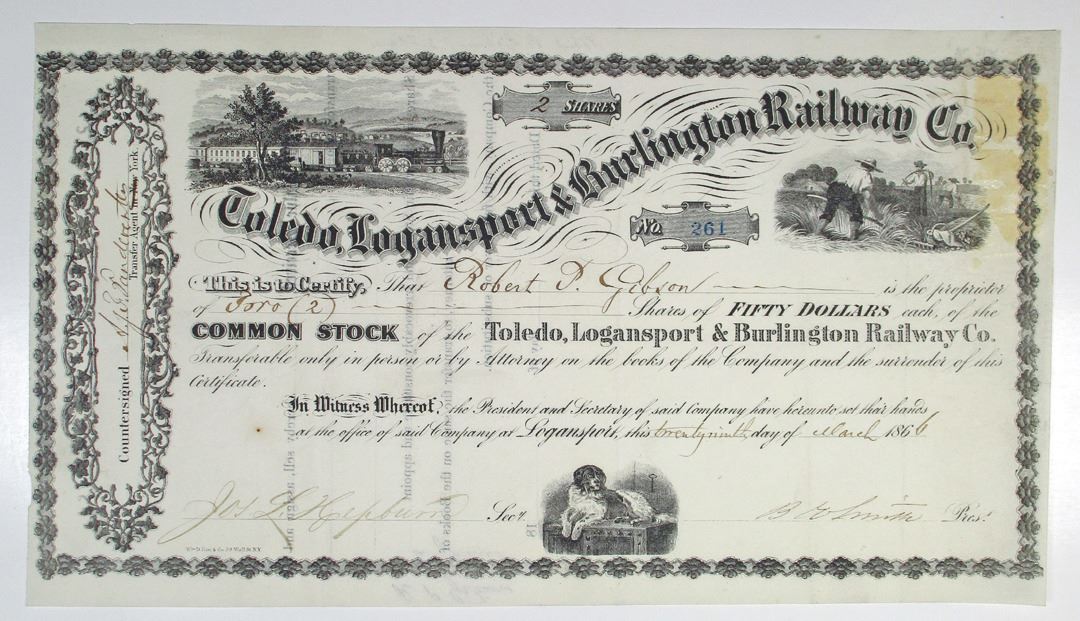 2 SHARES
Toledo, Logansport & Burlington Railway Co.
No. 261
This is to Certify, That Robert D. Gibson is the proprietor
of Two (2) Shares of FIFTY DOLLARS each, of the
COMMON STOCK of the Toledo, Logansport & Burlington Railway Co.
Transferable only in person or by Attorney on the books of the Company and the surrender of this
Certificate.
In Witness Whereof, the President and Secretary of said Company have hereunto set their hands
at the office of said Company at Logansport, this twenty ninth day of March 1866
Jos L Hepburn Secy. B E Smith Pres.t
Countersigned
Transfer Agent in New York.